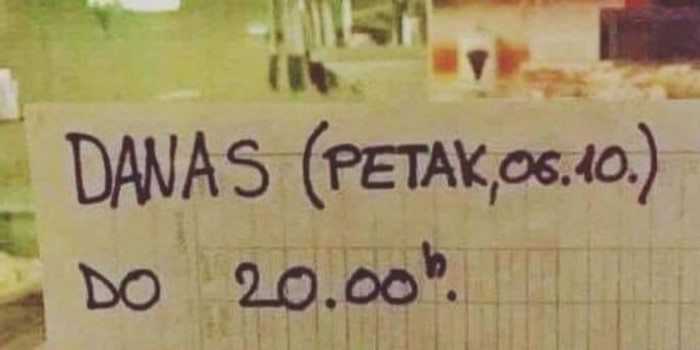 DANAS (PETAK, 06.10.)
DO 20.00h.